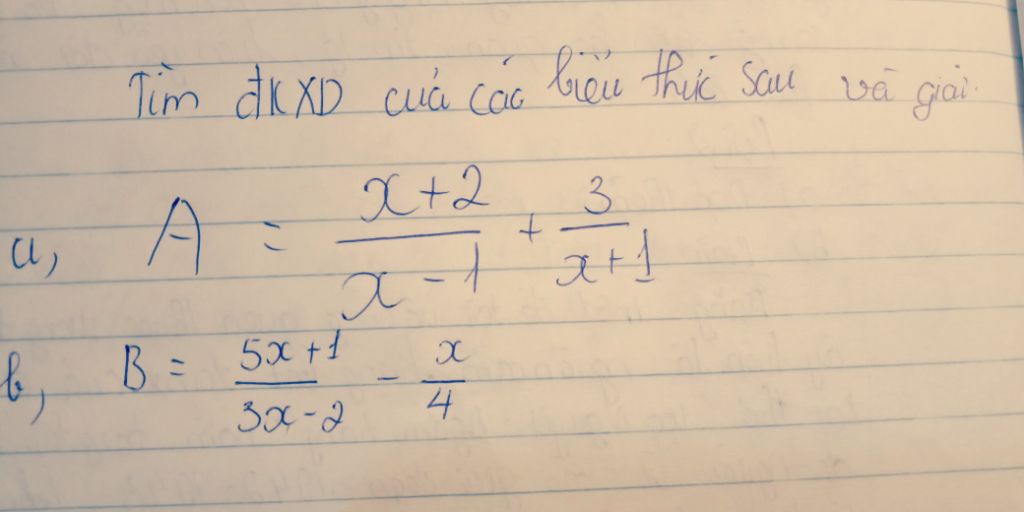 Tìm đKXD của các biểu thức sau và giải.
a, A = \frac{x+2}{x-1} + \frac{3}{x+1}
b, B = \frac{5x+1}{3x-2} - \frac{x}{4}